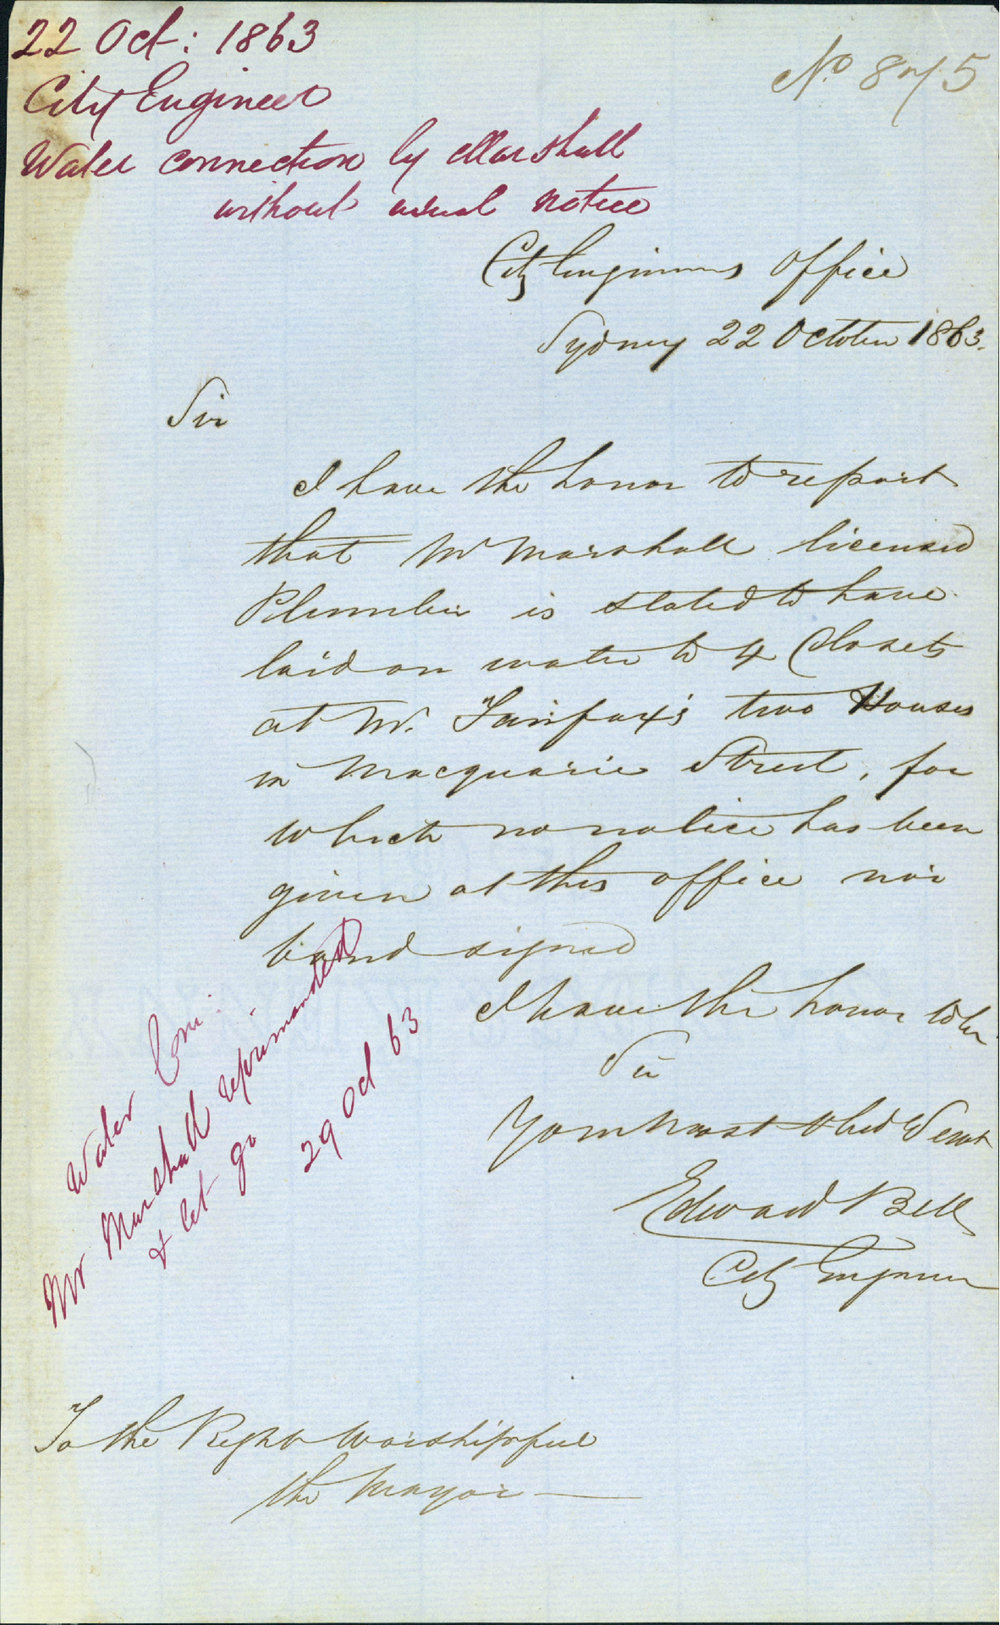 22 Oct: 1863
City Engineer
Water connection by Marshall
without usual notice
No 875
City Engineers Office
Sydney 22 October 1863.
Sir
I have the honor to report
that Mr Marshall licensed
Plumber is stated to have
laid on water to 4 Closets
at Mr. Fairfax's two Houses
in Macquarie Street, for
which no notice has been
given at this office nor
bond signed
I have the honor to be
Sir
Your most obed Servt
Edward Bell
City Engineer
Water Com:
Mr Marshall reprimanded
& let go
29 Oct 63
To the Right Worshipful
the Mayor